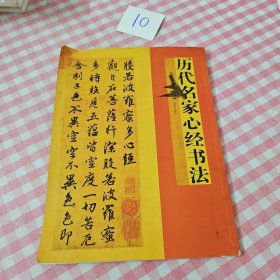 10
历代名家心经书法
般若波羅蜜多心經
觀自在菩薩行深般若波羅蜜
多時照見五蘊皆空度一切苦厄
舍利子色不異空空不異色色即